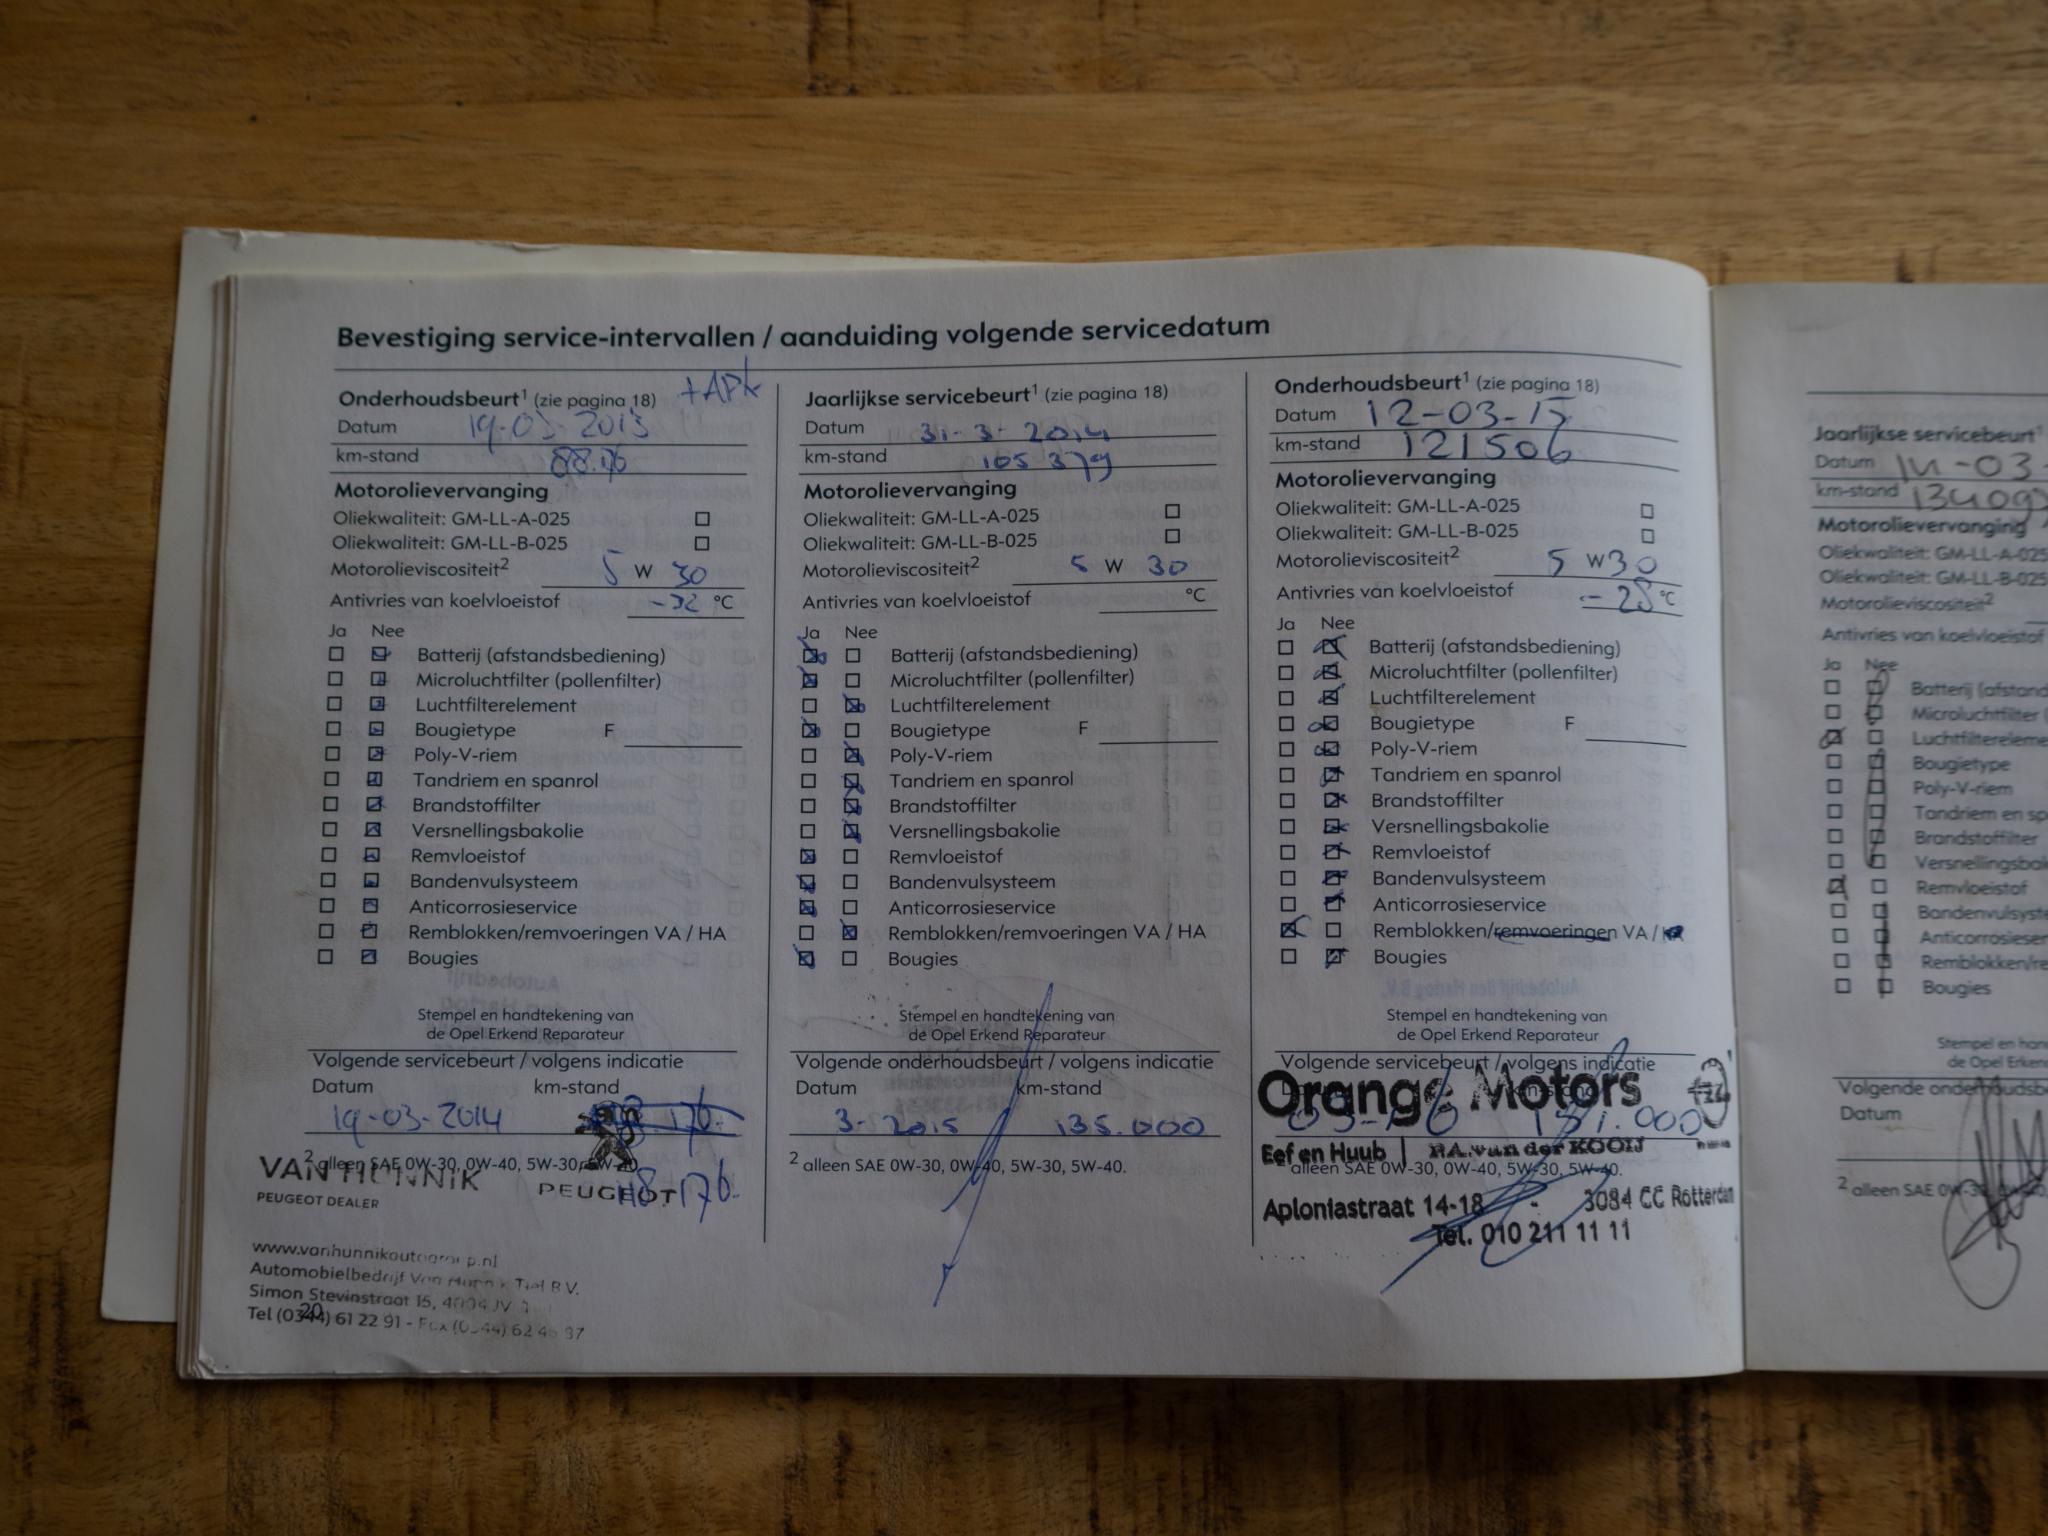 Bevestiging service-intervallen / aanduiding volgende servicedatum
Onderhoudsbeurt¹ (zie pagina 18) +APK
Datum 19-03-2013
km-stand
Motorolievervanging
Oliekwaliteit: GM-LL-A-025
Oliekwaliteit: GM-LL-B-025
Motorolieviscositeit² 5 W 30
Antivries van koelvloeistof -32 °C
Ja Nee
Batterij (afstandsbediening)
Microluchtfilter (pollenfilter)
Luchtfilterelement
Bougietype F
Poly-V-riem
Tandriem en spanrol
Brandstoffilter
Versnellingsbakolie
Remvloeistof
Bandenvulsysteem
Anticorrosieservice
Remblokken/remvoeringen VA / HA
Bougies
Stempel en handtekening van
de Opel Erkend Reparateur
Volgende servicebeurt / volgens indicatie
Datum km-stand
19-03-2014
² alleen SAE 0W-30, 0W-40, 5W-30, 5W-40.
VAN HUNNIK PEUGEOT
PEUGEOT DEALER
www.vanhunnikautogroep.nl
Automobielbedrijf Van Hunnik Tiel B.V.
Simon Stevinstraat 15, 4004 JV
20
Tel (0344) 61 22 91 - Fax (0344) 62 46 87
Jaarlijkse servicebeurt¹ (zie pagina 18)
Datum 31-3-2014
km-stand 105379
Motorolievervanging
Oliekwaliteit: GM-LL-A-025
Oliekwaliteit: GM-LL-B-025
Motorolieviscositeit² 5 W 30
Antivries van koelvloeistof °C
Ja Nee
Batterij (afstandsbediening)
Microluchtfilter (pollenfilter)
Luchtfilterelement
Bougietype F
Poly-V-riem
Tandriem en spanrol
Brandstoffilter
Versnellingsbakolie
Remvloeistof
Bandenvulsysteem
Anticorrosieservice
Remblokken/remvoeringen VA / HA
Bougies
Stempel en handtekening van
de Opel Erkend Reparateur
Volgende onderhoudsbeurt / volgens indicatie
Datum km-stand
3-2015 135.000
² alleen SAE 0W-30, 0W-40, 5W-30, 5W-40.
Onderhoudsbeurt¹ (zie pagina 18)
Datum 12-03-15
km-stand 121506
Motorolievervanging
Oliekwaliteit: GM-LL-A-025
Oliekwaliteit: GM-LL-B-025
Motorolieviscositeit² 5 W 30
Antivries van koelvloeistof -25 °C
Ja Nee
Batterij (afstandsbediening)
Microluchtfilter (pollenfilter)
Luchtfilterelement
Bougietype F
Poly-V-riem
Tandriem en spanrol
Brandstoffilter
Versnellingsbakolie
Remvloeistof
Bandenvulsysteem
Anticorrosieservice
Remblokken/remvoeringen VA / HA
Bougies
Stempel en handtekening van
de Opel Erkend Reparateur
Volgende servicebeurt / volgens indicatie
Orange Motors
Eef en Huub P.A. van der KOOIJ
² alleen SAE 0W-30, 0W-40, 5W-30, 5W-40.
Aploniastraat 14-18 - 3084 CC Rotterdam
Tel. 010 211 11 11
Jaarlijkse servicebeurt¹
Datum 14-03-
km-stand
Motorolievervanging
Oliekwaliteit: GM-LL-A-025
Oliekwaliteit: GM-LL-B-025
Motorolieviscositeit²
Antivries van koelvloeistof
Ja Nee
Batterij (afstand
Microluchtfilter (
Luchtfiltereleme
Bougietype
Poly-V-riem
Tandriem en sp
Brandstoffilter
Versnellingsbak
Remvloeistof
Bandenvulsyste
Anticorrosieser
Remblokken/re
Bougies
Stempel en hand
de Opel Erken
Volgende onderhoudsb
Datum
² alleen SAE 0W-30, 0W-40,